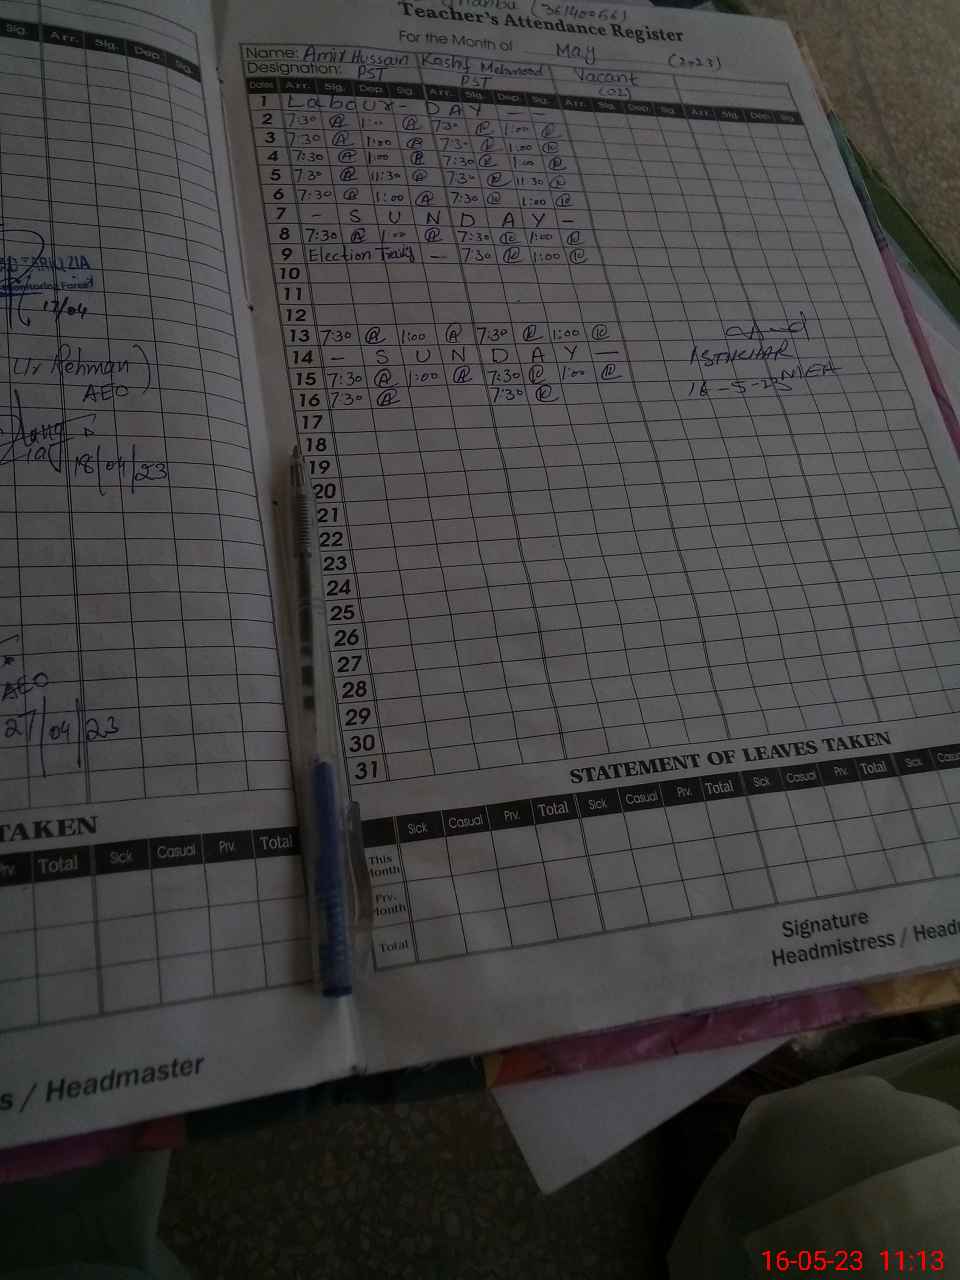 (36140066)
Teacher's Attendance Register
For the Month of May (2023)
Name: Amir Hussain Kashf Mehmood Vacant
Designation: PST PST (02)
Dates Arr. Sig. Dep. Sig. Arr. Sig. Dep. Sig. Arr. Sig. Dep. Sig. Arr. Sig. Dep. Sig.
1 Labour - DAY - -
2 7:30 A 1:00 A 7:30 K 1:00 K
3 7:30 A 1:00 A 7:30 K 1:00 K
4 7:30 A 1:00 A 7:30 K 1:00 K
5 7:30 A 11:30 A 7:30 K 11:30 K
6 7:30 A 1:00 A 7:30 K 1:00 K
7 - S U N D A Y -
8 7:30 A 1:00 A 7:30 K 1:00 K
9 Election - 7:30 K 1:00 K
10
11
12
13 7:30 A 1:00 A 7:30 K 1:00 K
14 - S U N D A Y -
15 7:30 A 1:00 A 7:30 K 1:00 K
16 7:30 A 7:30 K
17
18
19
20
21
22
23
24
25
26
27
28
29
30
31
ISTIKHAR
MEA
16-5-23
STATEMENT OF LEAVES TAKEN
Sick Casual Prv. Total Sick Casual Prv. Total Sick Casual Prv. Total Sick
This Month
Prv. Month
Total
Signature
Headmistress /
Sig. Arr. Sig. Dep. Sig.
TARIQ ZIA
17/04
Ur Rehman)
AEO
18/04/23
AEO
27/04/23
TAKEN
Prv. Total Sick Casual Prv. Total
s / Headmaster
16-05-23 11:13